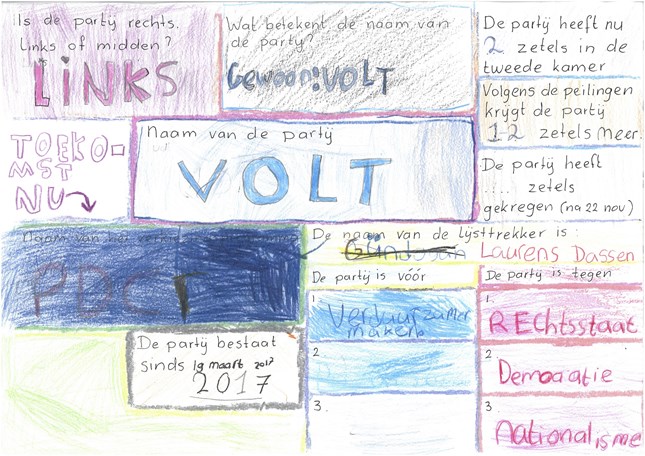 Is de party rechts.
Links of midden?
LiNKS
Wat betekent de naam van
de party?
Gewoon: VOLT
De partij heeft nu
2 zetels in de
tweede kamer
Volgens de peilingen
krygt de partij
12 zetels meer.
De partij heeft
.... zetels
gekregen (na 22 nov)
TOEKO-
MST
NU
Naam van de partij
VOLT
Naam van
PDC
De naam van de lijsttrekker is:
Laurens Dassen
De partij bestaat
sinds 19 maart 2017
2017
De partij is vóór
1.
zamer
maken
2
3.
De partij is tegen
1.
REchtsstaat
2.
Demoaatie
3.
Nationalisme